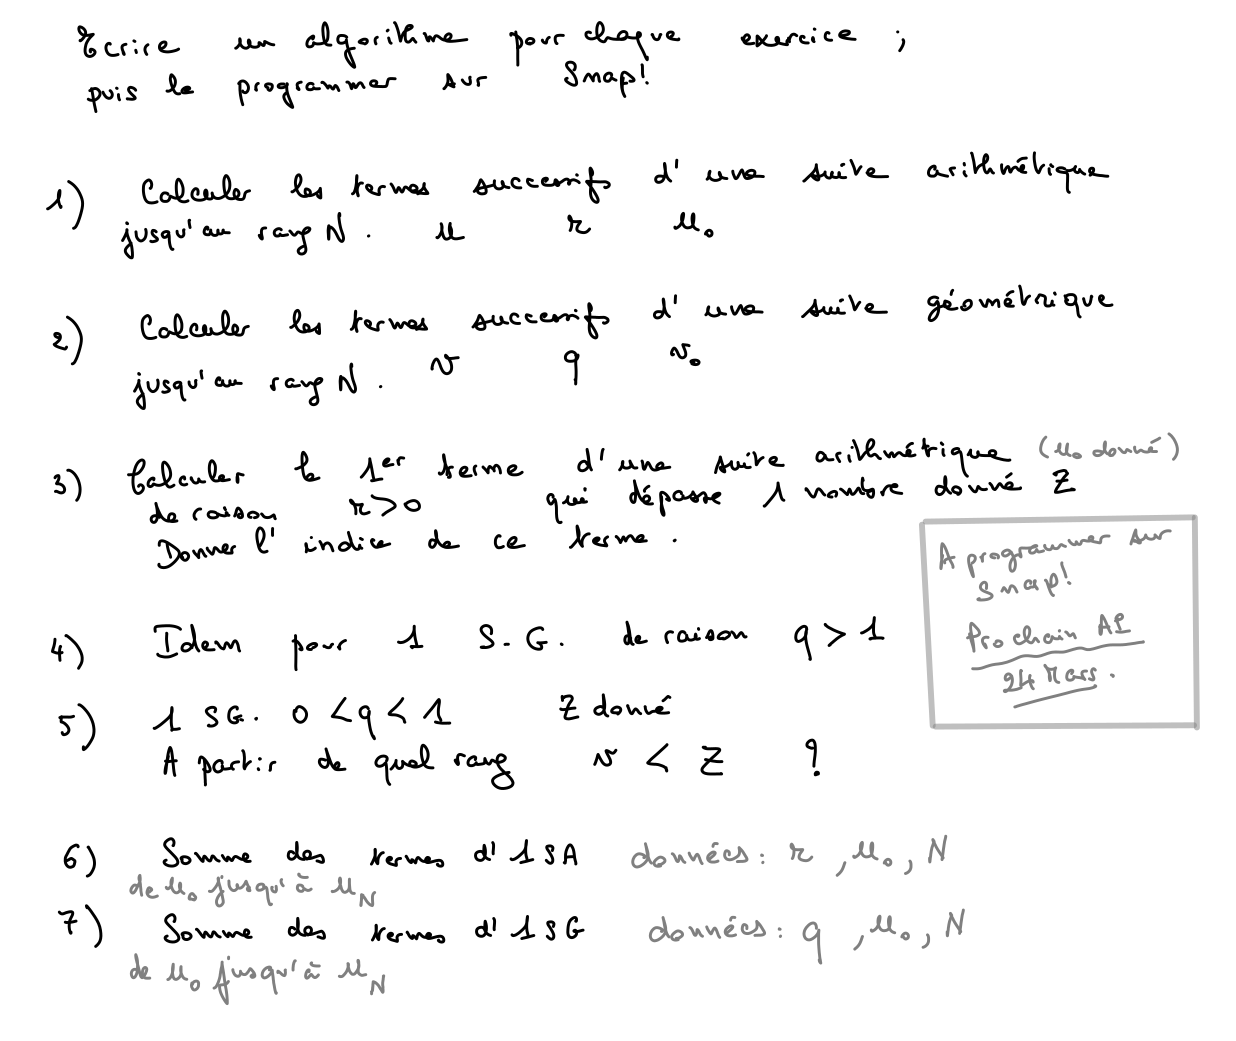 Ecrire un algorithme pour chaque exercice ;
puis le programmer sur Snap!
1) Calculer les termes successifs d'une suite arithmétique
jusqu'au rang N. u r u₀
2) Calculer les termes successifs d'une suite géométrique
jusqu'au rang N. v q v₀
3) Calculer le 1er terme d'une suite arithmétique (u₀ donné)
de raison r>0 qui dépasse 1 nombre donné Z
Donner l'indice de ce terme.
A programmer sur
Snap!
Prochain AP
24 Mars.
4) Idem pour 1 S.G. de raison q > 1
5) 1 SG. 0 < q < 1 Z donné
A partir de quel rang v < Z ?
6) Somme des termes d'1 SA données : r, u₀, N
de u₀ jusqu'à u_N
7) Somme des termes d'1 SG données : q, u₀, N
de u₀ jusqu'à u_N